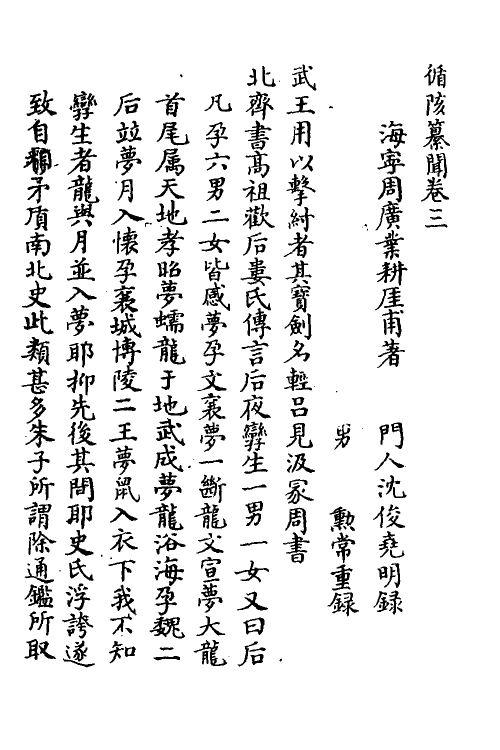 循陔纂聞卷三
海寧周廣業耕厓甫著　門人沈俊堯明録
男　勲常重録
武王用以擊紂者其寶劍名輕呂見汲冢周書
北齊書高祖歡后婁氏傳言后夜孿生一男一女又曰后
凡孕六男二女皆感夢孕文襄夢一斷龍文宣夢大龍
首尾属天地孝昭夢蠕龍于地武成夢龍浴海孕魏二
后竝夢月入懷孕襄城博陵二王夢鼠入衣下我不知
孿生者龍與月並入夢耶抑先後其間耶史氏浮誇遂
致自矛盾南北史此類甚多朱子所謂除通鑑所取